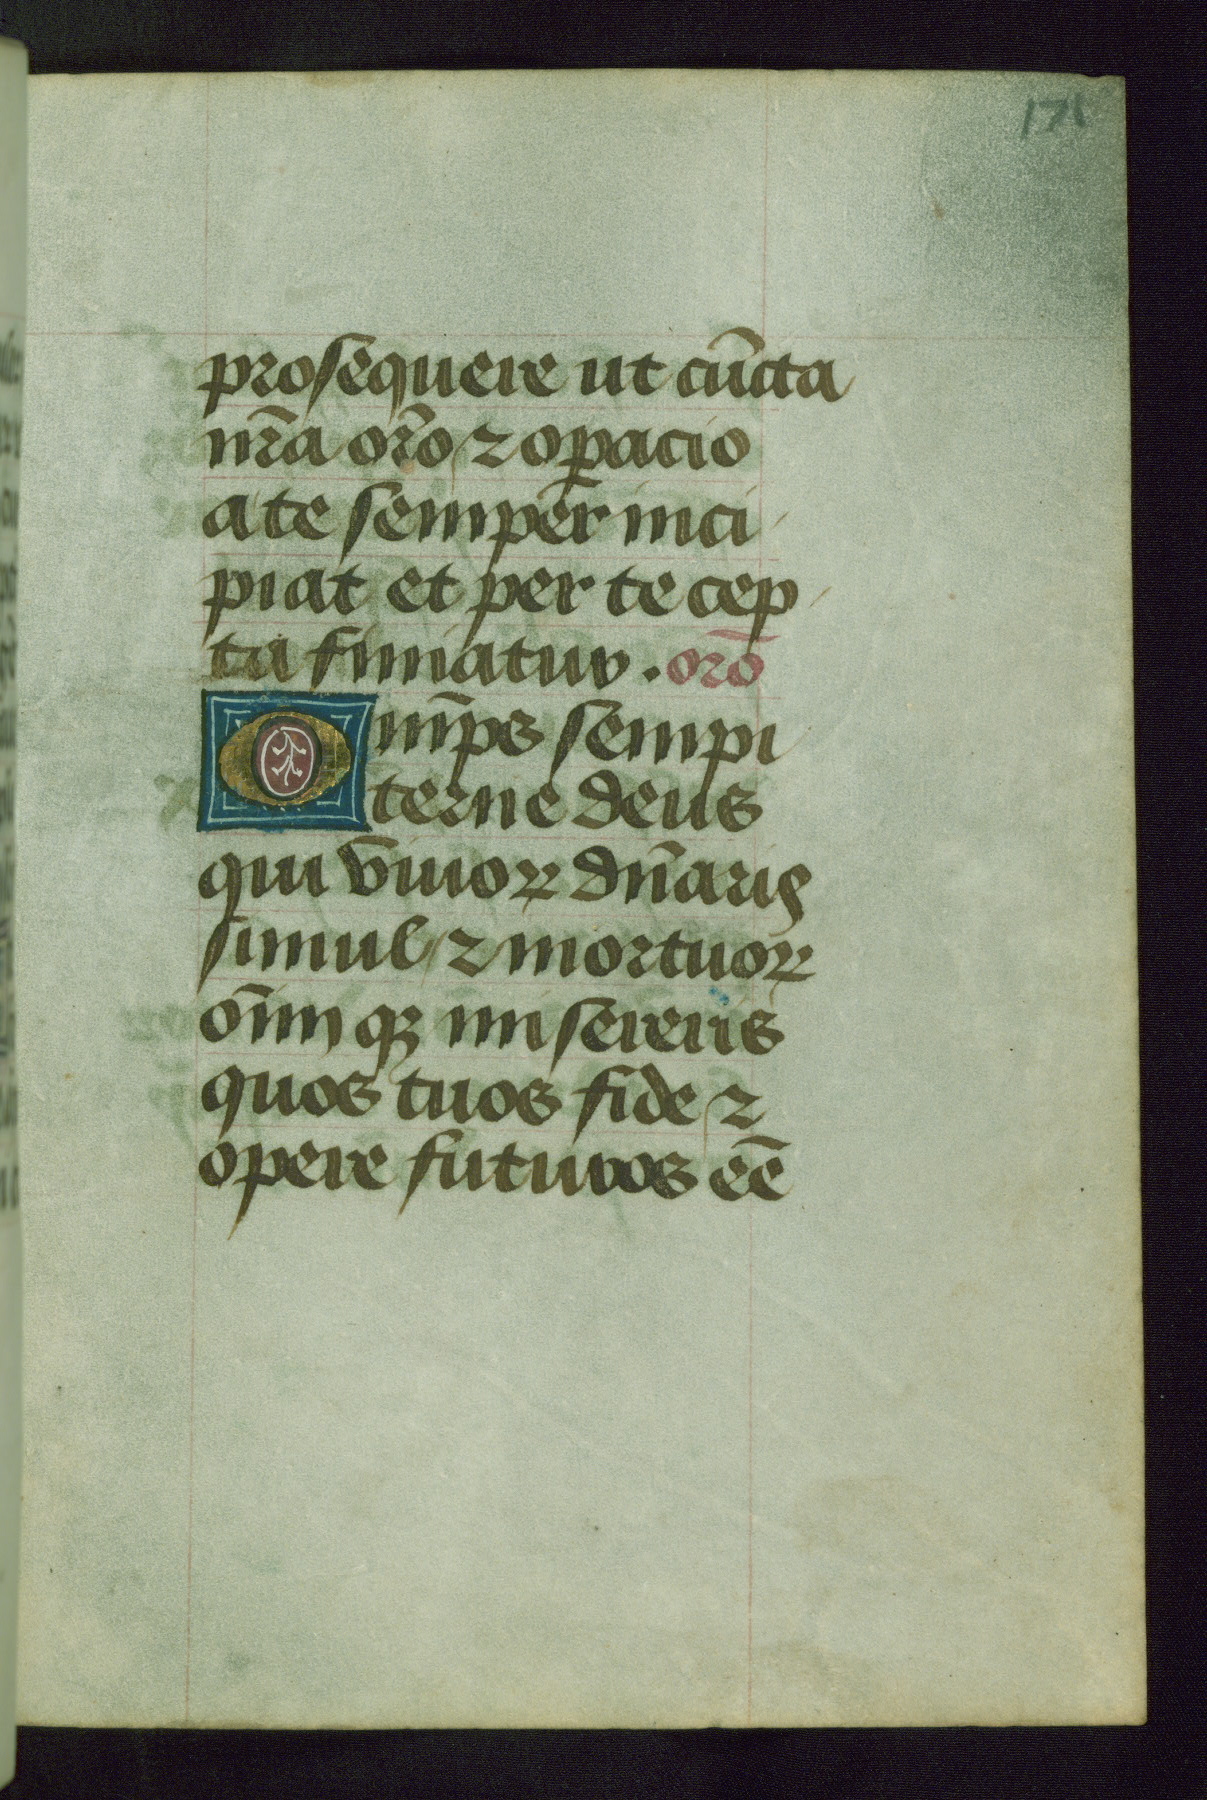 171
prosequere ut cūcta
nr̄a orō ⁊ oꝑacio
a te semper inci
piat et per te cep
ta finiatur . orō
Omp̄s sempi
terne deus
qui viuoꝝ dn̄aris
simul ⁊ mortuoꝝ
oīm qꝫ misereris
quos tuos fide ⁊
opere futuros eē